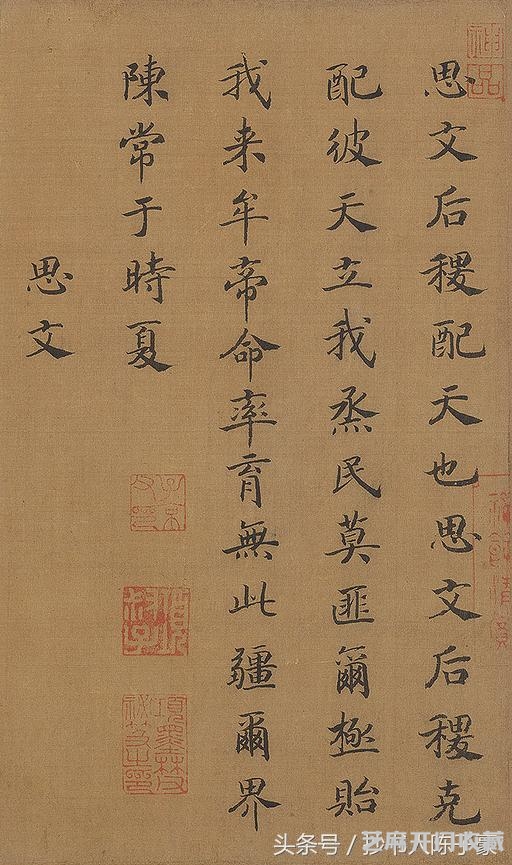 思文后稷配天也思文后稷克
配彼天立我烝民莫匪爾極貽
我来牟帝命率育無此疆爾界
陳常于時夏
思文
神品
頭条号